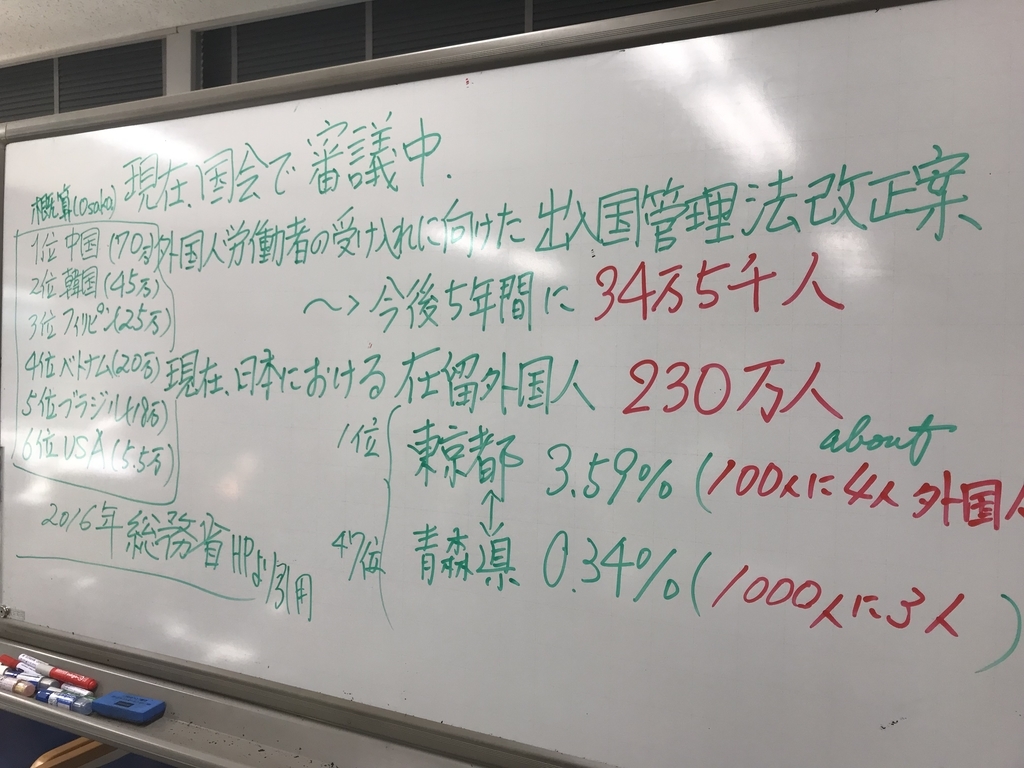 現在、国会で審議中.
外国人労働者の受け入れに向けた出入国管理法改正案
〜>今後5年間に 34万5千人
現在、日本における在留外国人 230万人
1位 東京都 3.59% (about 100人に4人 外国人
↕
47位 青森県 0.34% (1000人に3人)
概算(Osaka)
1位 中国(70万)
2位 韓国(45万)
3位 フィリピン(25万)
4位 ベトナム(20万)
5位 ブラジル(18万)
6位 USA(5.5万)
2016年 総務省HPより引用